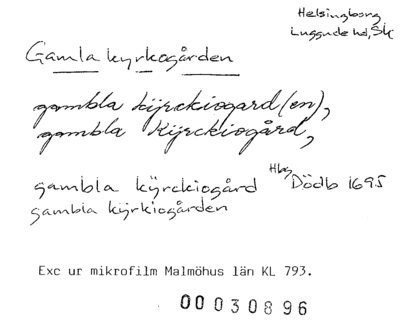 Helsingborg
Luggude hd, Sk
Gamla kyrkogården
gambla kijrckiogard(en),
gambla Kijrckiogård,
gambla kÿrckiogård Hbg Dödb 1695
gambla kÿrkiogården
Exc ur mikrofilm Malmöhus län KL 793.
00030896